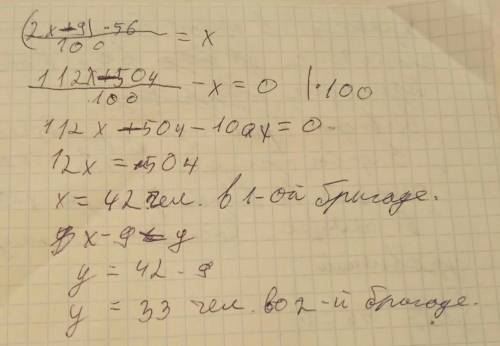 (2x-9)·56 / 100 = x
112x-504 / 100 - x = 0 |·100
112x - 504 - 100x = 0
12x = 504
x = 42 чел. в 1-ой бригаде.
x - 9 = y
y = 42 - 9
y = 33 чел. во 2-й бригаде.